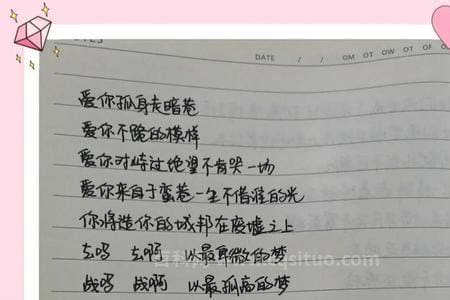 DATE / / OM OT OW OT OF
爱你孤身走暗巷
爱你不跪的模样
爱你对峙过绝望不肯哭一场
爱你来自于蛮巷一生不借谁的光
你将造你的城邦在废墟之上
去吗 去啊 以最卑微的梦
战吗 战啊 以最孤高的梦
situo.com